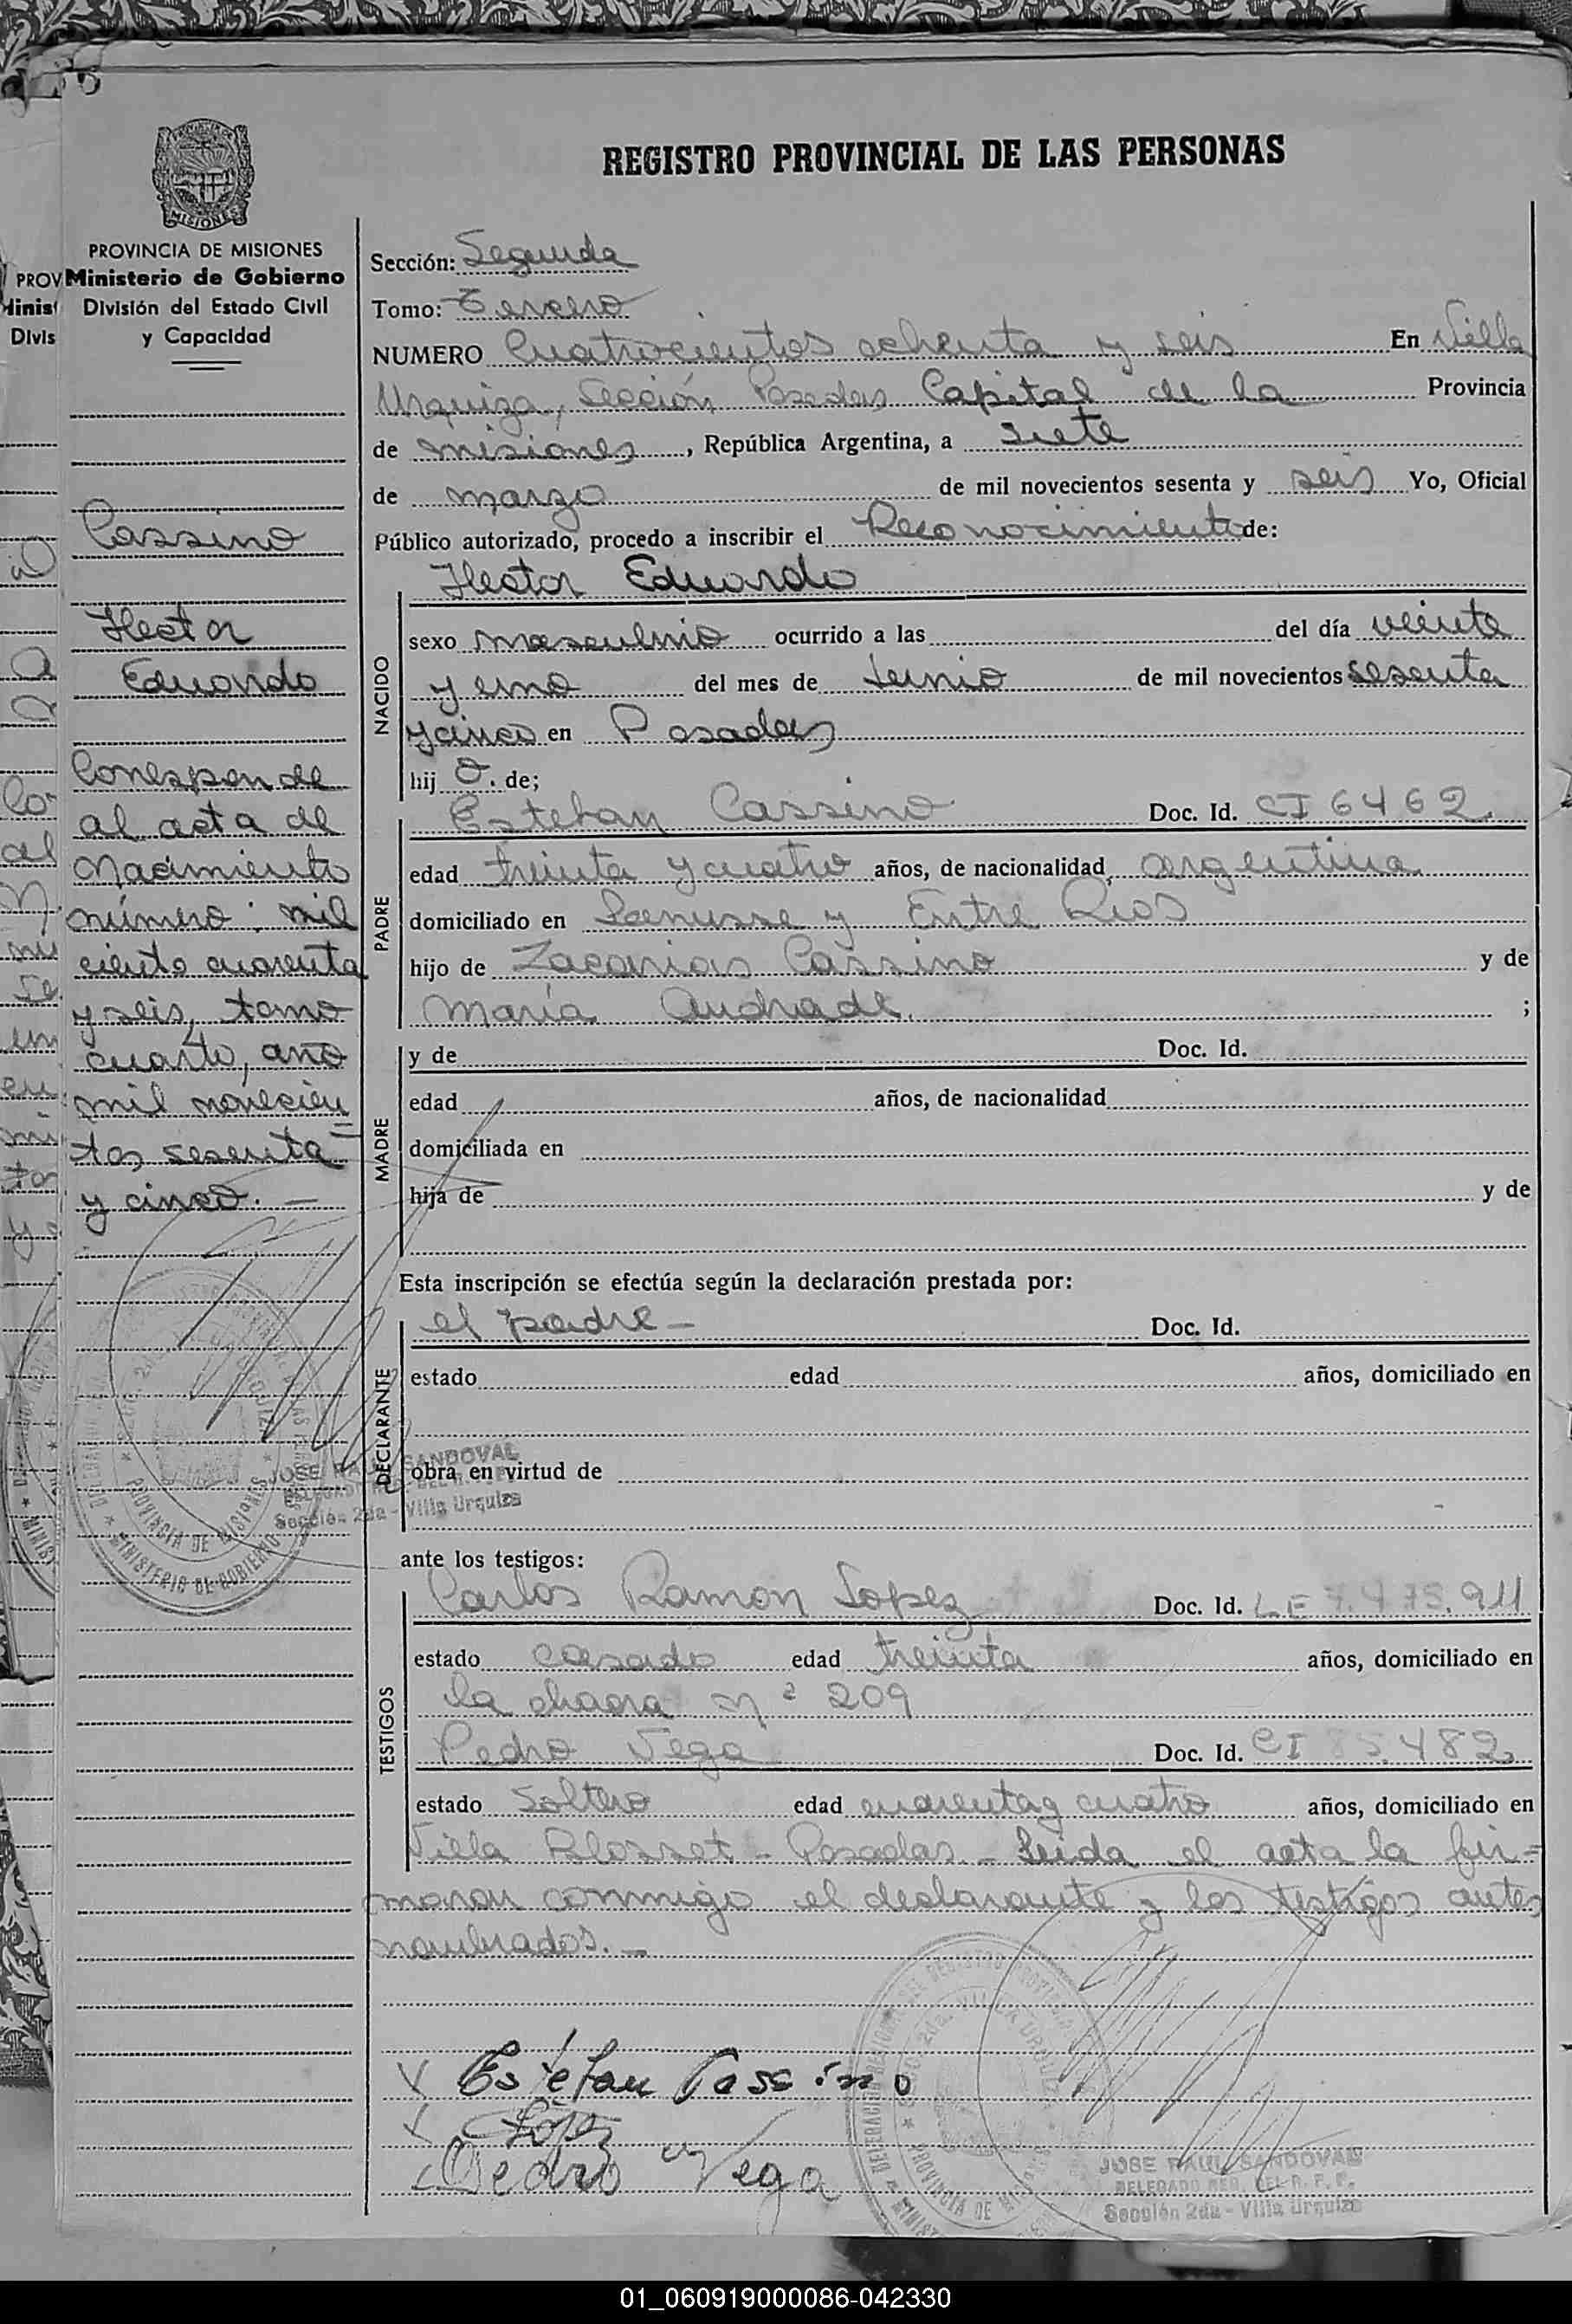 REGISTRO PROVINCIAL DE LAS PERSONAS
MISIONES
PROVINCIA DE MISIONES
Ministerio de Gobierno
División del Estado Civil
y Capacidad
PROV
Minist
Divis
Cassino
Hector
Eduardo
Corresponde
al acta de
Nacimiento
número: mil
ciento cuarenta
y seis, tomo
cuarto, año
mil novecien
tos sesenta
y cinco. —
Sección: Segunda
Tomo: Tercero
NUMERO Cuatrocientos ochenta y seis En Villa
Urquiza, Sección Posadas Capital de la Provincia
de misiones, República Argentina, a siete
de marzo de mil novecientos sesenta y seis Yo, Oficial
Público autorizado, procedo a inscribir el Reconocimiento de:
Hector Eduardo
NACIDO
sexo masculino ocurrido a las del día veinte
y uno del mes de Junio de mil novecientos sesenta
y cinco en Posadas
hij o. de;
PADRE
Esteban Cassino Doc. Id. CI 6462
edad treinta y cuatro años, de nacionalidad argentina
domiciliado en Lanusse y Entre Rios
hijo de Zacarias Cassino y de
María Andrade. ;
MADRE
y de Doc. Id.
edad años, de nacionalidad
domiciliada en
hija de y de
Esta inscripción se efectúa según la declaración prestada por:
DECLARANTE
el padre — Doc. Id.
estado edad años, domiciliado en
obra en virtud de
JOSE RAUL SANDOVAL
Sección 2da - Villa Urquiza
PROVINCIA DE MISIONES
MINISTERIO DE GOBIERNO
ante los testigos:
TESTIGOS
Carlos Ramon Lopez Doc. Id. LE 7.475.911
estado casado edad treinta años, domiciliado en
la chacra nº 209
Pedro Vega Doc. Id. CI 85.482
estado soltero edad cuarenta y cuatro años, domiciliado en
Villa Blosset - Posadas. - Leida el acta la fir=
maran conmigo el declarante y los testigos antes
nombrados. —
X Esteban Cassino
X López
Pedro Vega
PROVINCIA DE MISIONES
JOSE RAUL SANDOVAL
DELEGADO REG. DEL R. P. P.
Sección 2da - Villa Urquiza
01_060919000086-042330